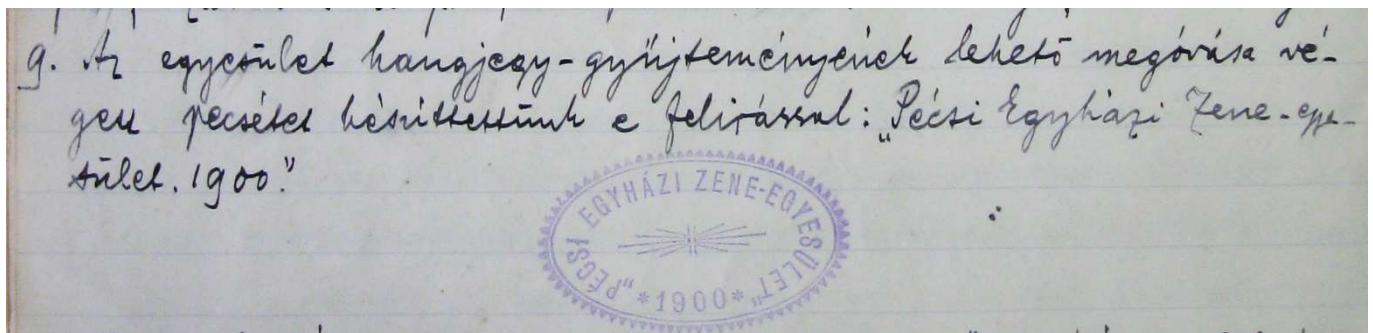 9. Az egyesület hangjegy-gyűjteményének lehető megóvása vé-
gett pecsétet készíttettünk e felirással: „Pécsi Egyházi Zene-egye-
sület. 1900."
„PÉCSI EGYHÁZI ZENE-EGYESÜLET”
*1900*